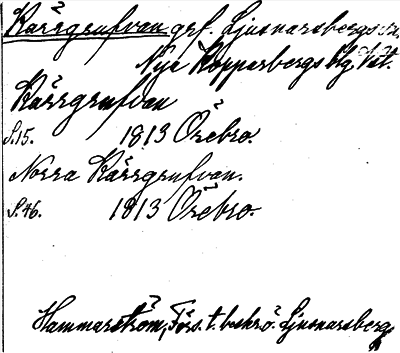 Kärrgrufvan grf. Ljusnarsbergs sn.
Nya Kopparbergs blg. Vst.
Kärrgrufvan
S. 15. 1813 Örebro.
Norra Kärrgrufvan.
S. 46. 1813 Örebro.
Hammarström, Förs. t. beskr. ö. Ljusnarsberg